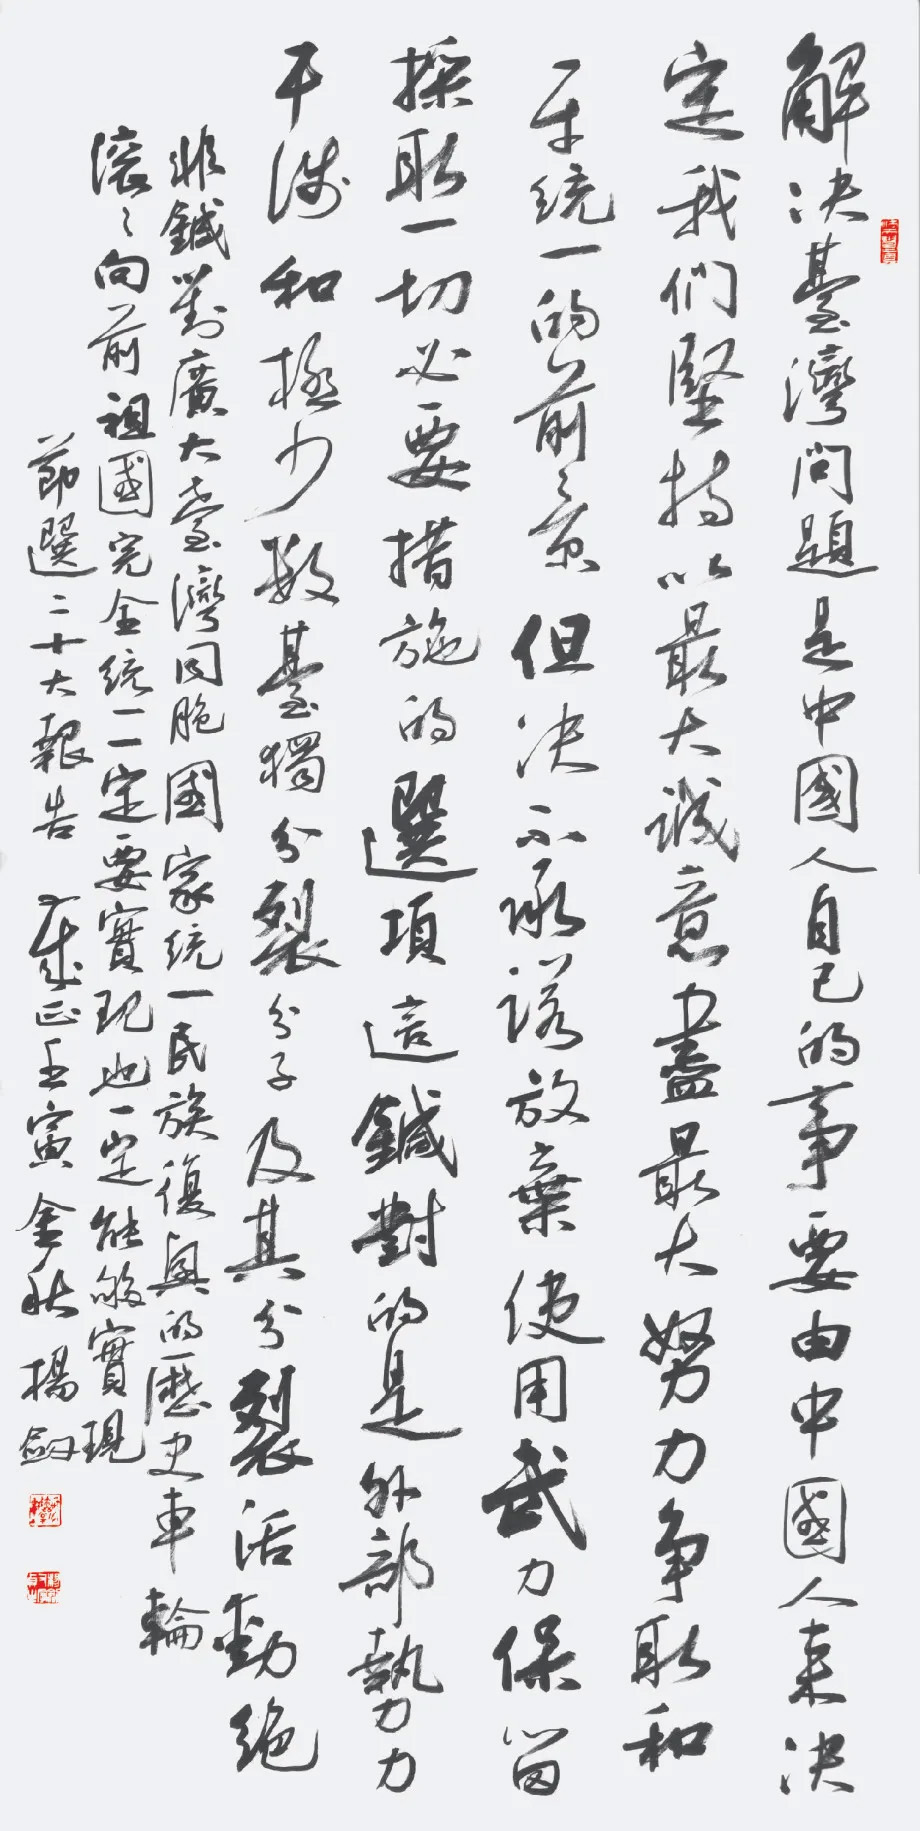 解决臺灣問題是中國人自己的事要由中國人来决
定我們堅持以最大誠意盡最大努力争取和
平统一的前景但决不承諾放棄使用武力保留
採取一切必要措施的選項這鍼對的是外部勢力
干涉和極少数臺獨分裂分子及其分裂活動绝
非鍼對廣大臺灣同胞國家统一民族復興的歷史車輪
滚々向前祖國完全统一一定要實现也一定能够實現
節選二十大報告 歲在壬寅金秋楊劍